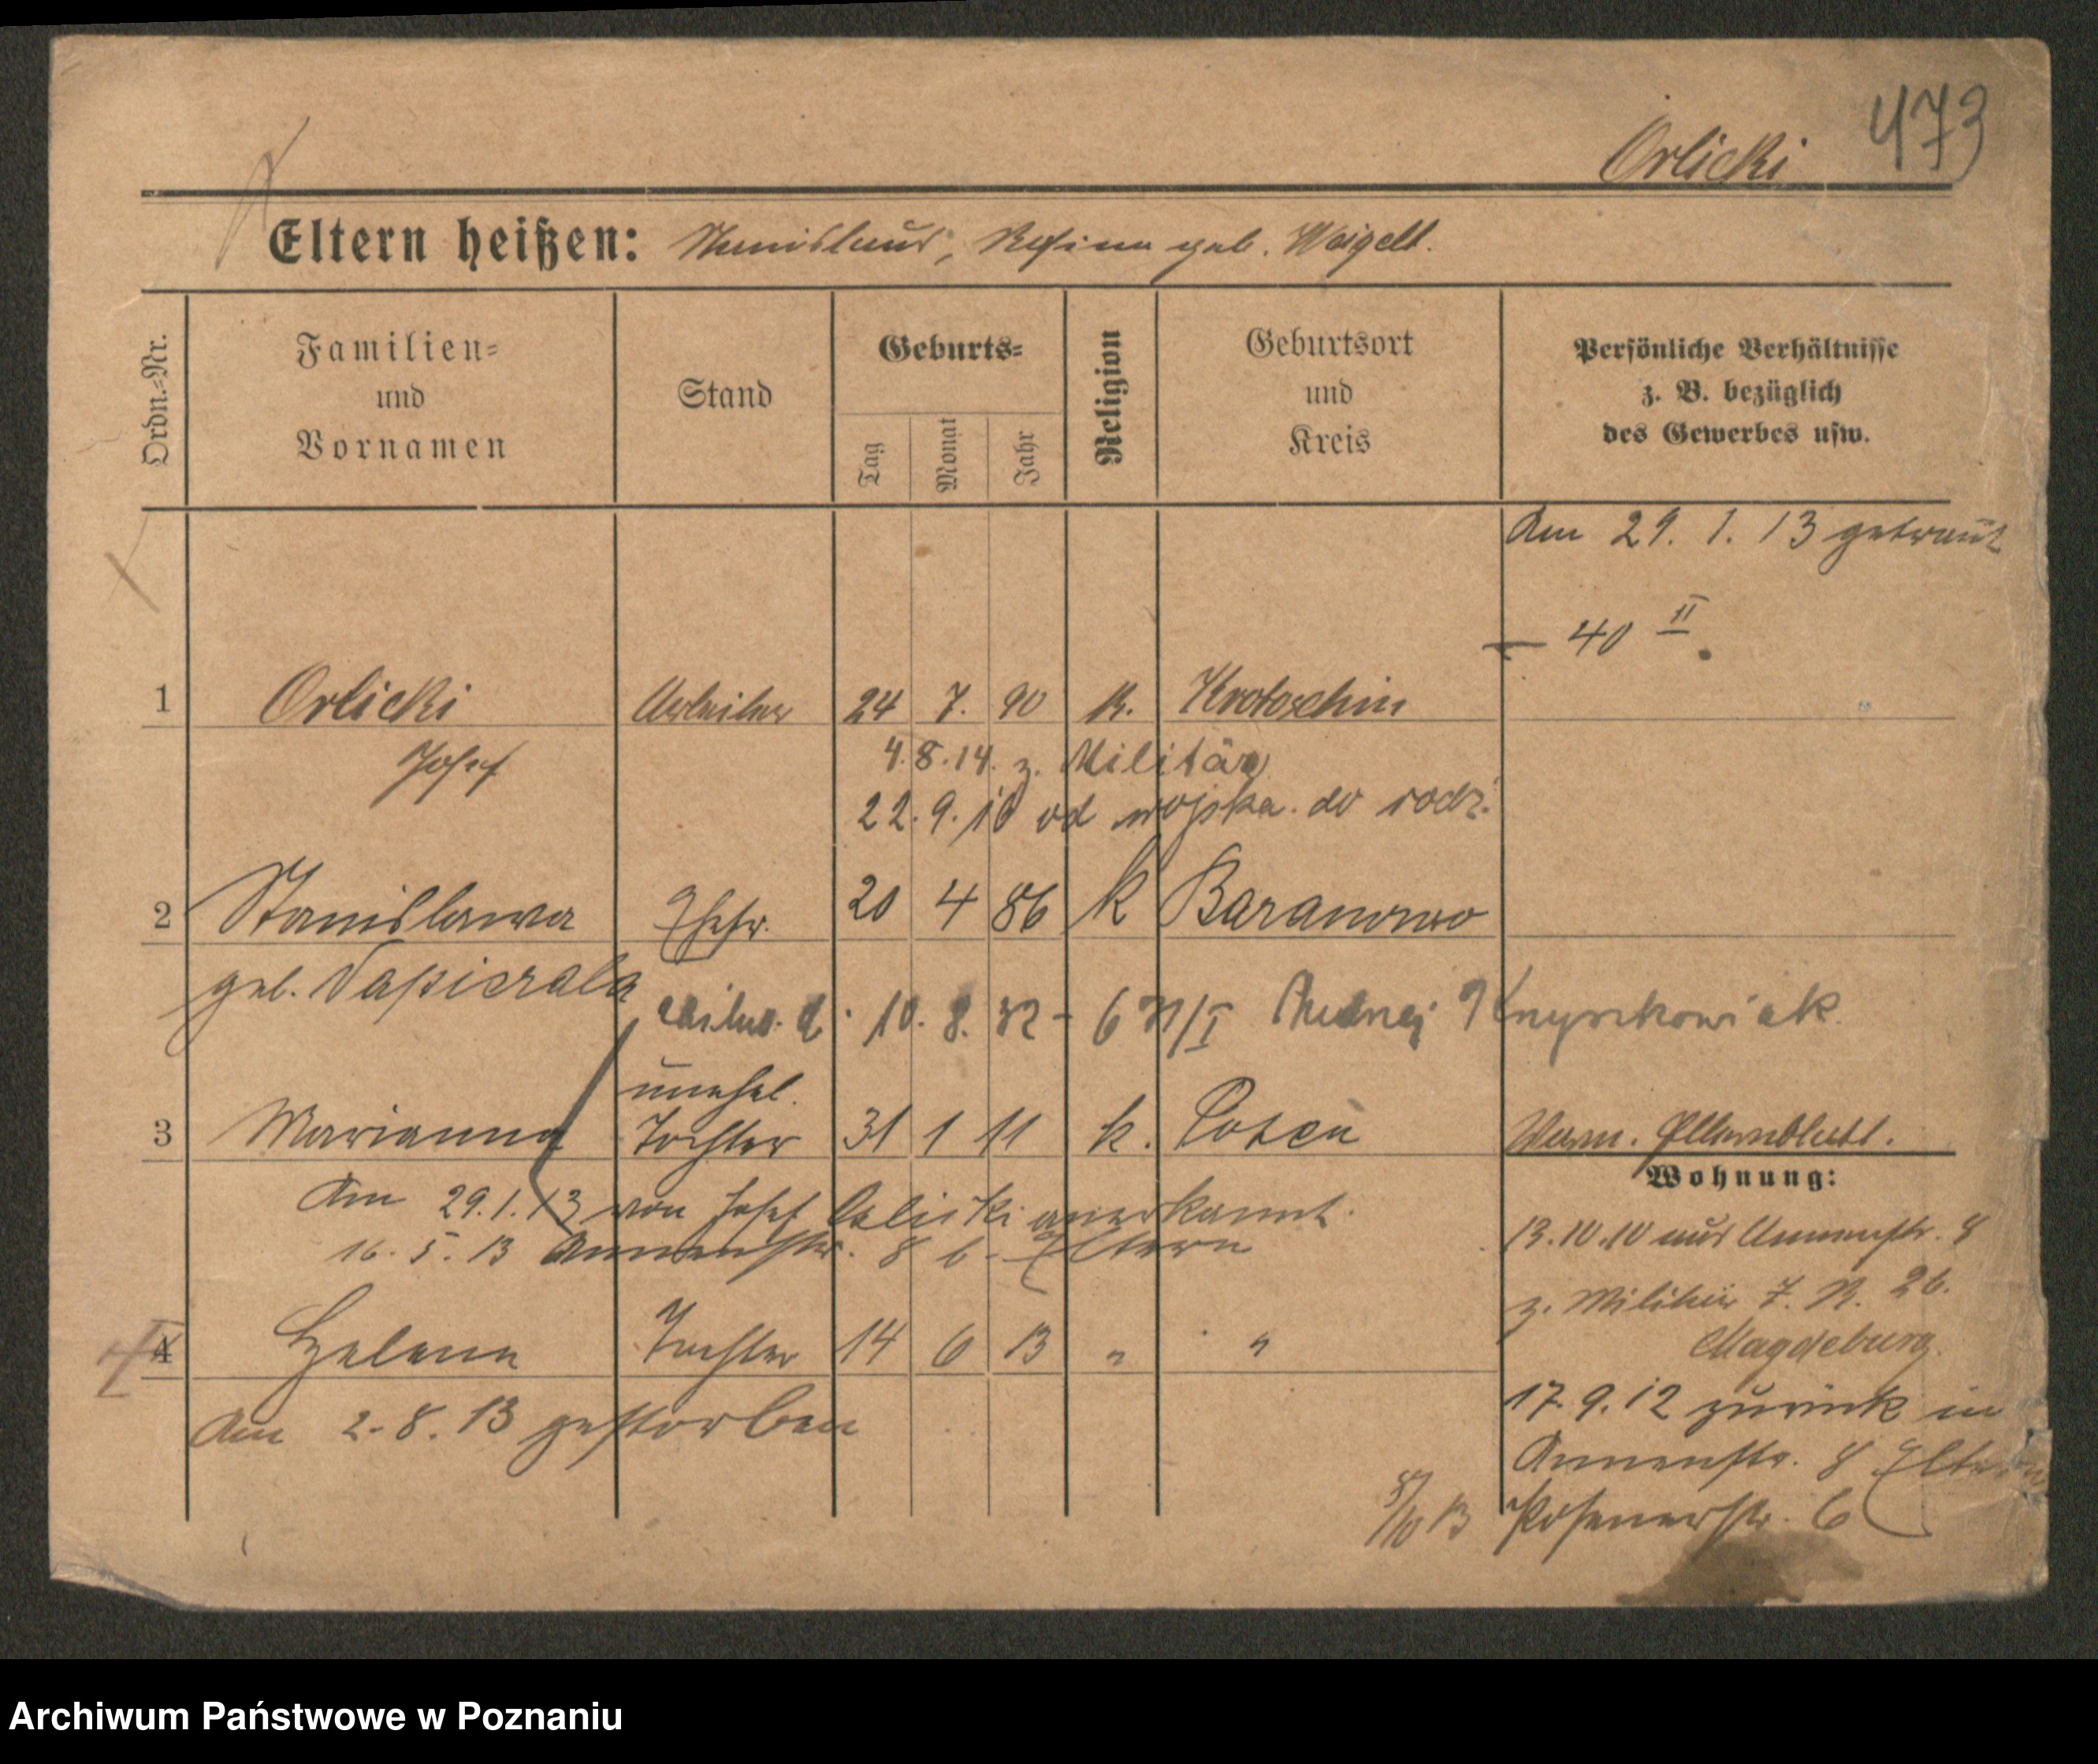 473
Orlicki
Eltern heißen: Stanislaus, Regina geb. Weigelt.
Ordn.-Nr.
Familien-
und
Vornamen
Stand
Geburts-
Tag
Monat
Jahr
Religion
Geburtsort
und
Kreis
Persönliche Verhältnisse
z. B. bezüglich
des Gewerbes usw.
Am 29. 1. 13 getraut
40 II
1 Orlicki Arbeiter 24 7. 90 k. Krotoschin
Josef
4.8.14. z. Militär
22.9.18 od wojska do rodz.
2 Stanislawa Ehefr. 20 4 86 k Baranowo
geb. Napierala
10. 8. 32 - 6
3 Marianna unehel. Tochter 31 1 11 k. Posen
Am 29.1.13 von Josef Orlicki anerkannt.
16. 5. 13 Annenstr. 8 b. Eltern
4 Helene Tochter 14 6 13 " "
Am 2.8.13 gestorben
Elternblatt.
Wohnung:
13.10.10 aus Annenstr. 8
z. Militär F. R. 26.
Magdeburg.
17.9.12 zurück in
Annenstr. 8 Eltern
5/10 13 Posenerstr. 6
Archiwum Państwowe w Poznaniu